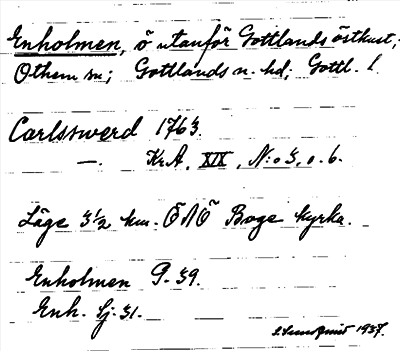 Enholmen, ö utanför Gottlands östkust;
Othem sn; Gottlands n. hd; Gottl. l.
Carlsswerd 1763.
—. Kr.A, XIX, N:o 3, o. 6.
Läge 3 1/2 km. ÖNÖ Boge kyrka.
Enholmen G. 39.
Enh. Sj. 31.
1937.